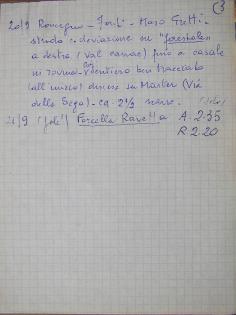 (3
20/9 Roncegno - Torti - Maso Fretti -
strada - deviazione su "forestale"
a destra (val cavae) fino a casale
in rovina - sentiero ben tracciato
(all'inizio) discesa su Marter (Via
della Sega) - ca. 2½
21/9 (Jole) Forcella Ravetta A. 2.35
R. 2.20